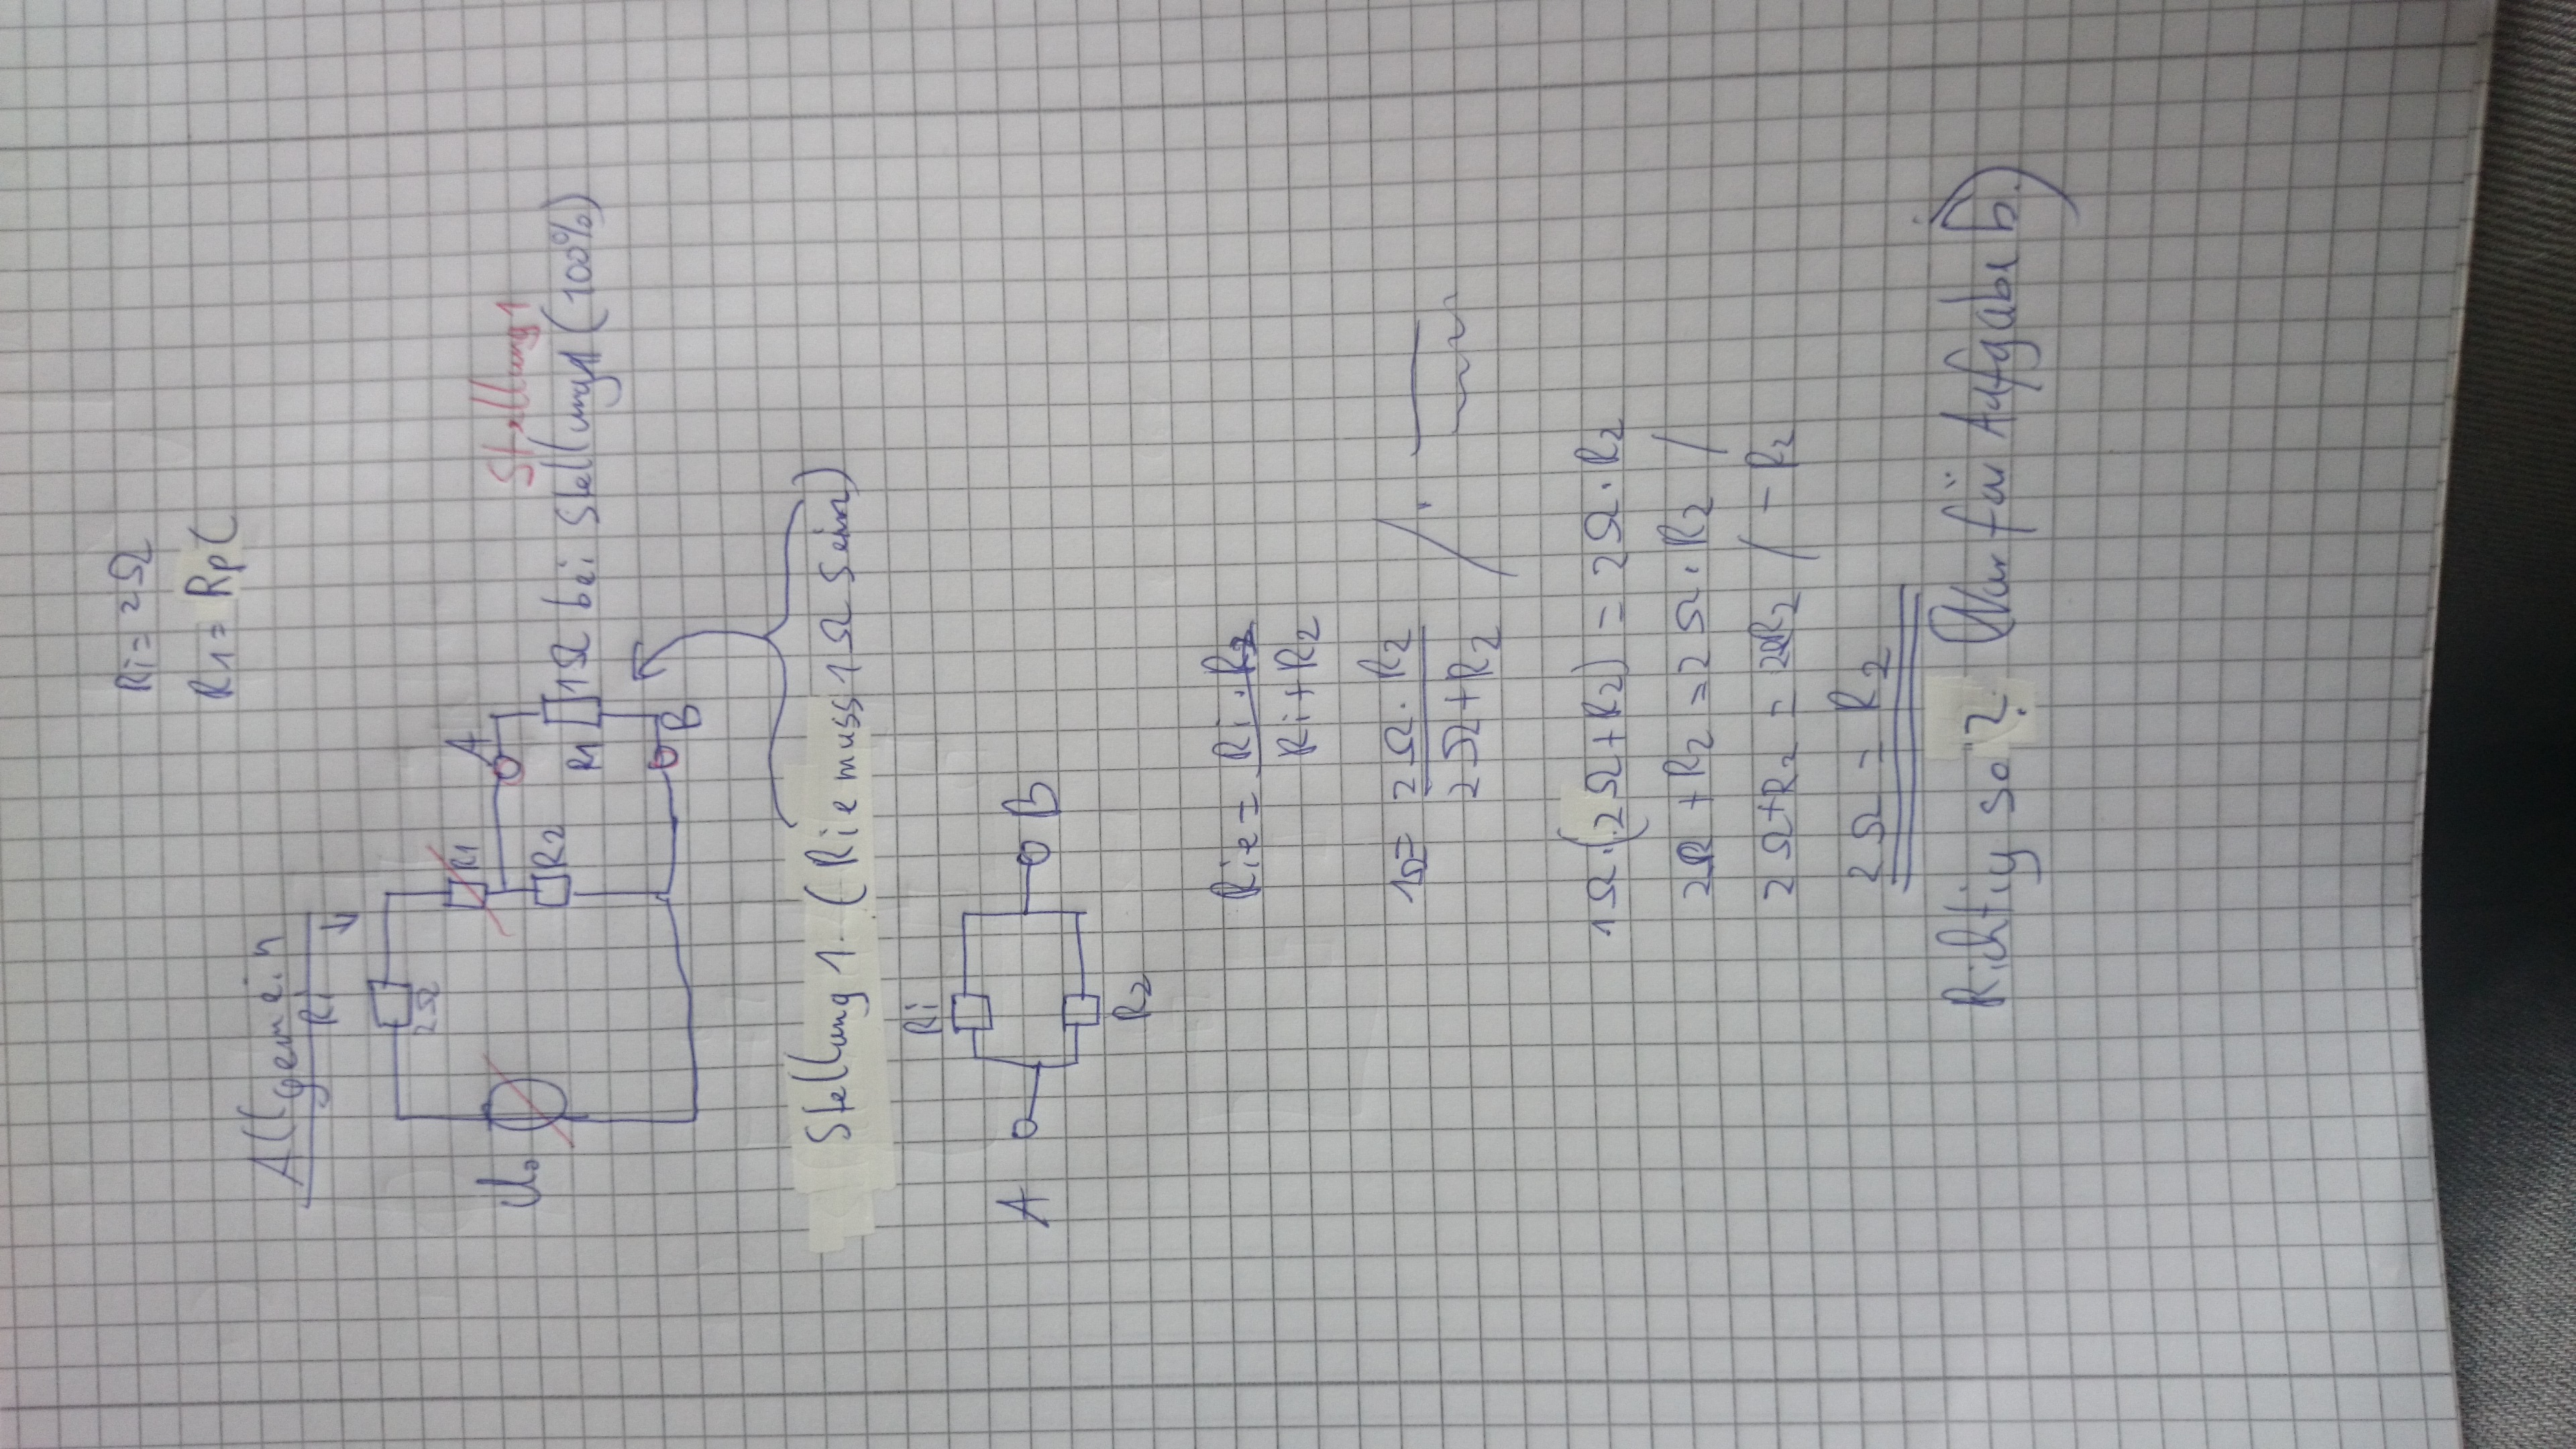 Ri = 2Ω
R1 = Rpl
Allgemein
Ri
2Ω
R1
A
Stellung 1
U0
R2
R1
1Ω bei Stellung1 (100%)
B
Stellung 1. (Rie muss 1Ω sein)
Ri
A
B
R2
Rie = Ri · R2 / Ri + R2
1Ω = 2Ω · R2 / 2Ω + R2
1Ω · (2Ω + R2) = 2Ω · R2
2Ω + R2 = 2Ω · R2 /
2Ω + R2 = 2R2 / - R2
2Ω = R2
Richtig so? (Nur für Aufgabe b.)